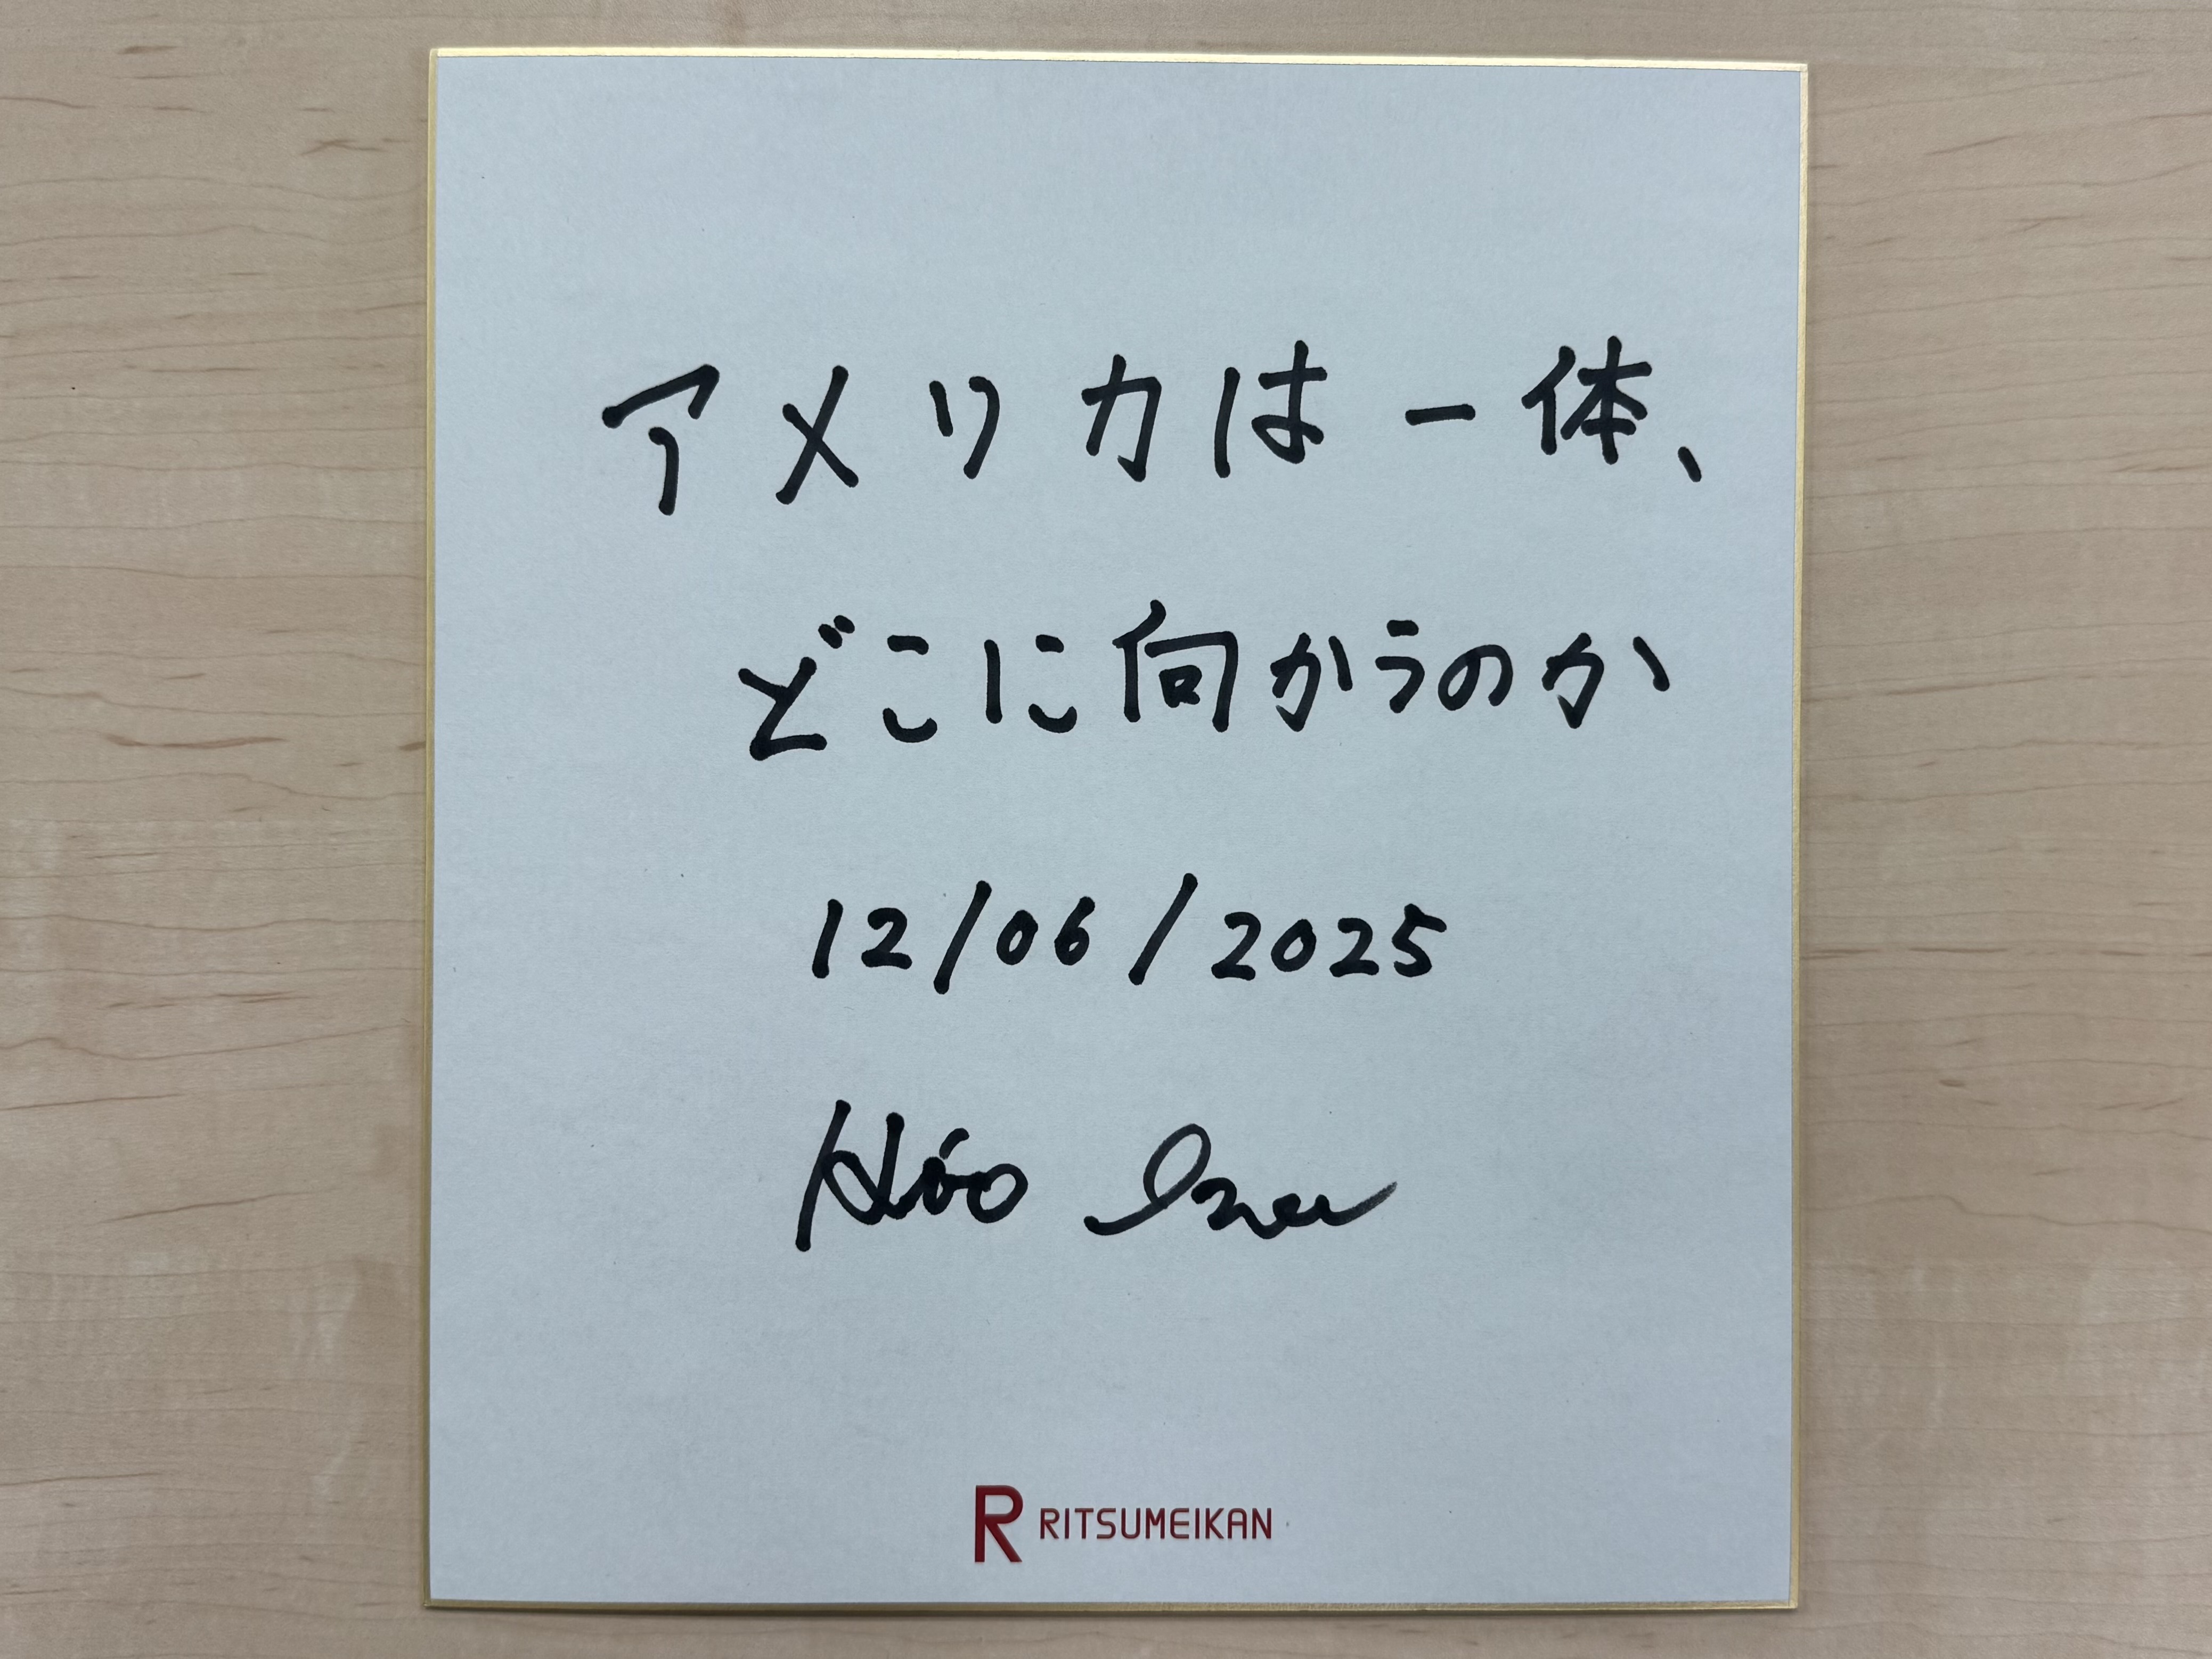 アメリカは一体、
どこに向かうのか
12/06/2025
R RITSUMEIKAN